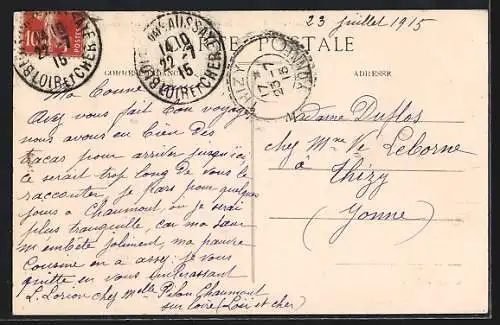 23 juillet 1915
CARTE POSTALE
CORRESPONDANCE
ADRESSE
10
POSTES
22-7
15
LOIR ET CHER
14 10
22-7
15
LOIR ET CHER
17
25-7
15
YONNE
Ma Cousine
Avez vous fait bon voyage
nous avons eu bien des
tracas pour arriver jusqu'ici
ce serait trop long de vous le
raconter, je pars pour quelques
jours à Chaumont, où je serai
plus tranquille, car ma sœur
m'embête joliment, ma pauvre
Cousine on a assez je vous
quitte en vous embrassant
L. Lorion chez Melle Pelou Chaumont
sur Loire (Loir et cher)
Madame Duflos
chez Mme Ve Leborne
à Thizy
(Yonne)